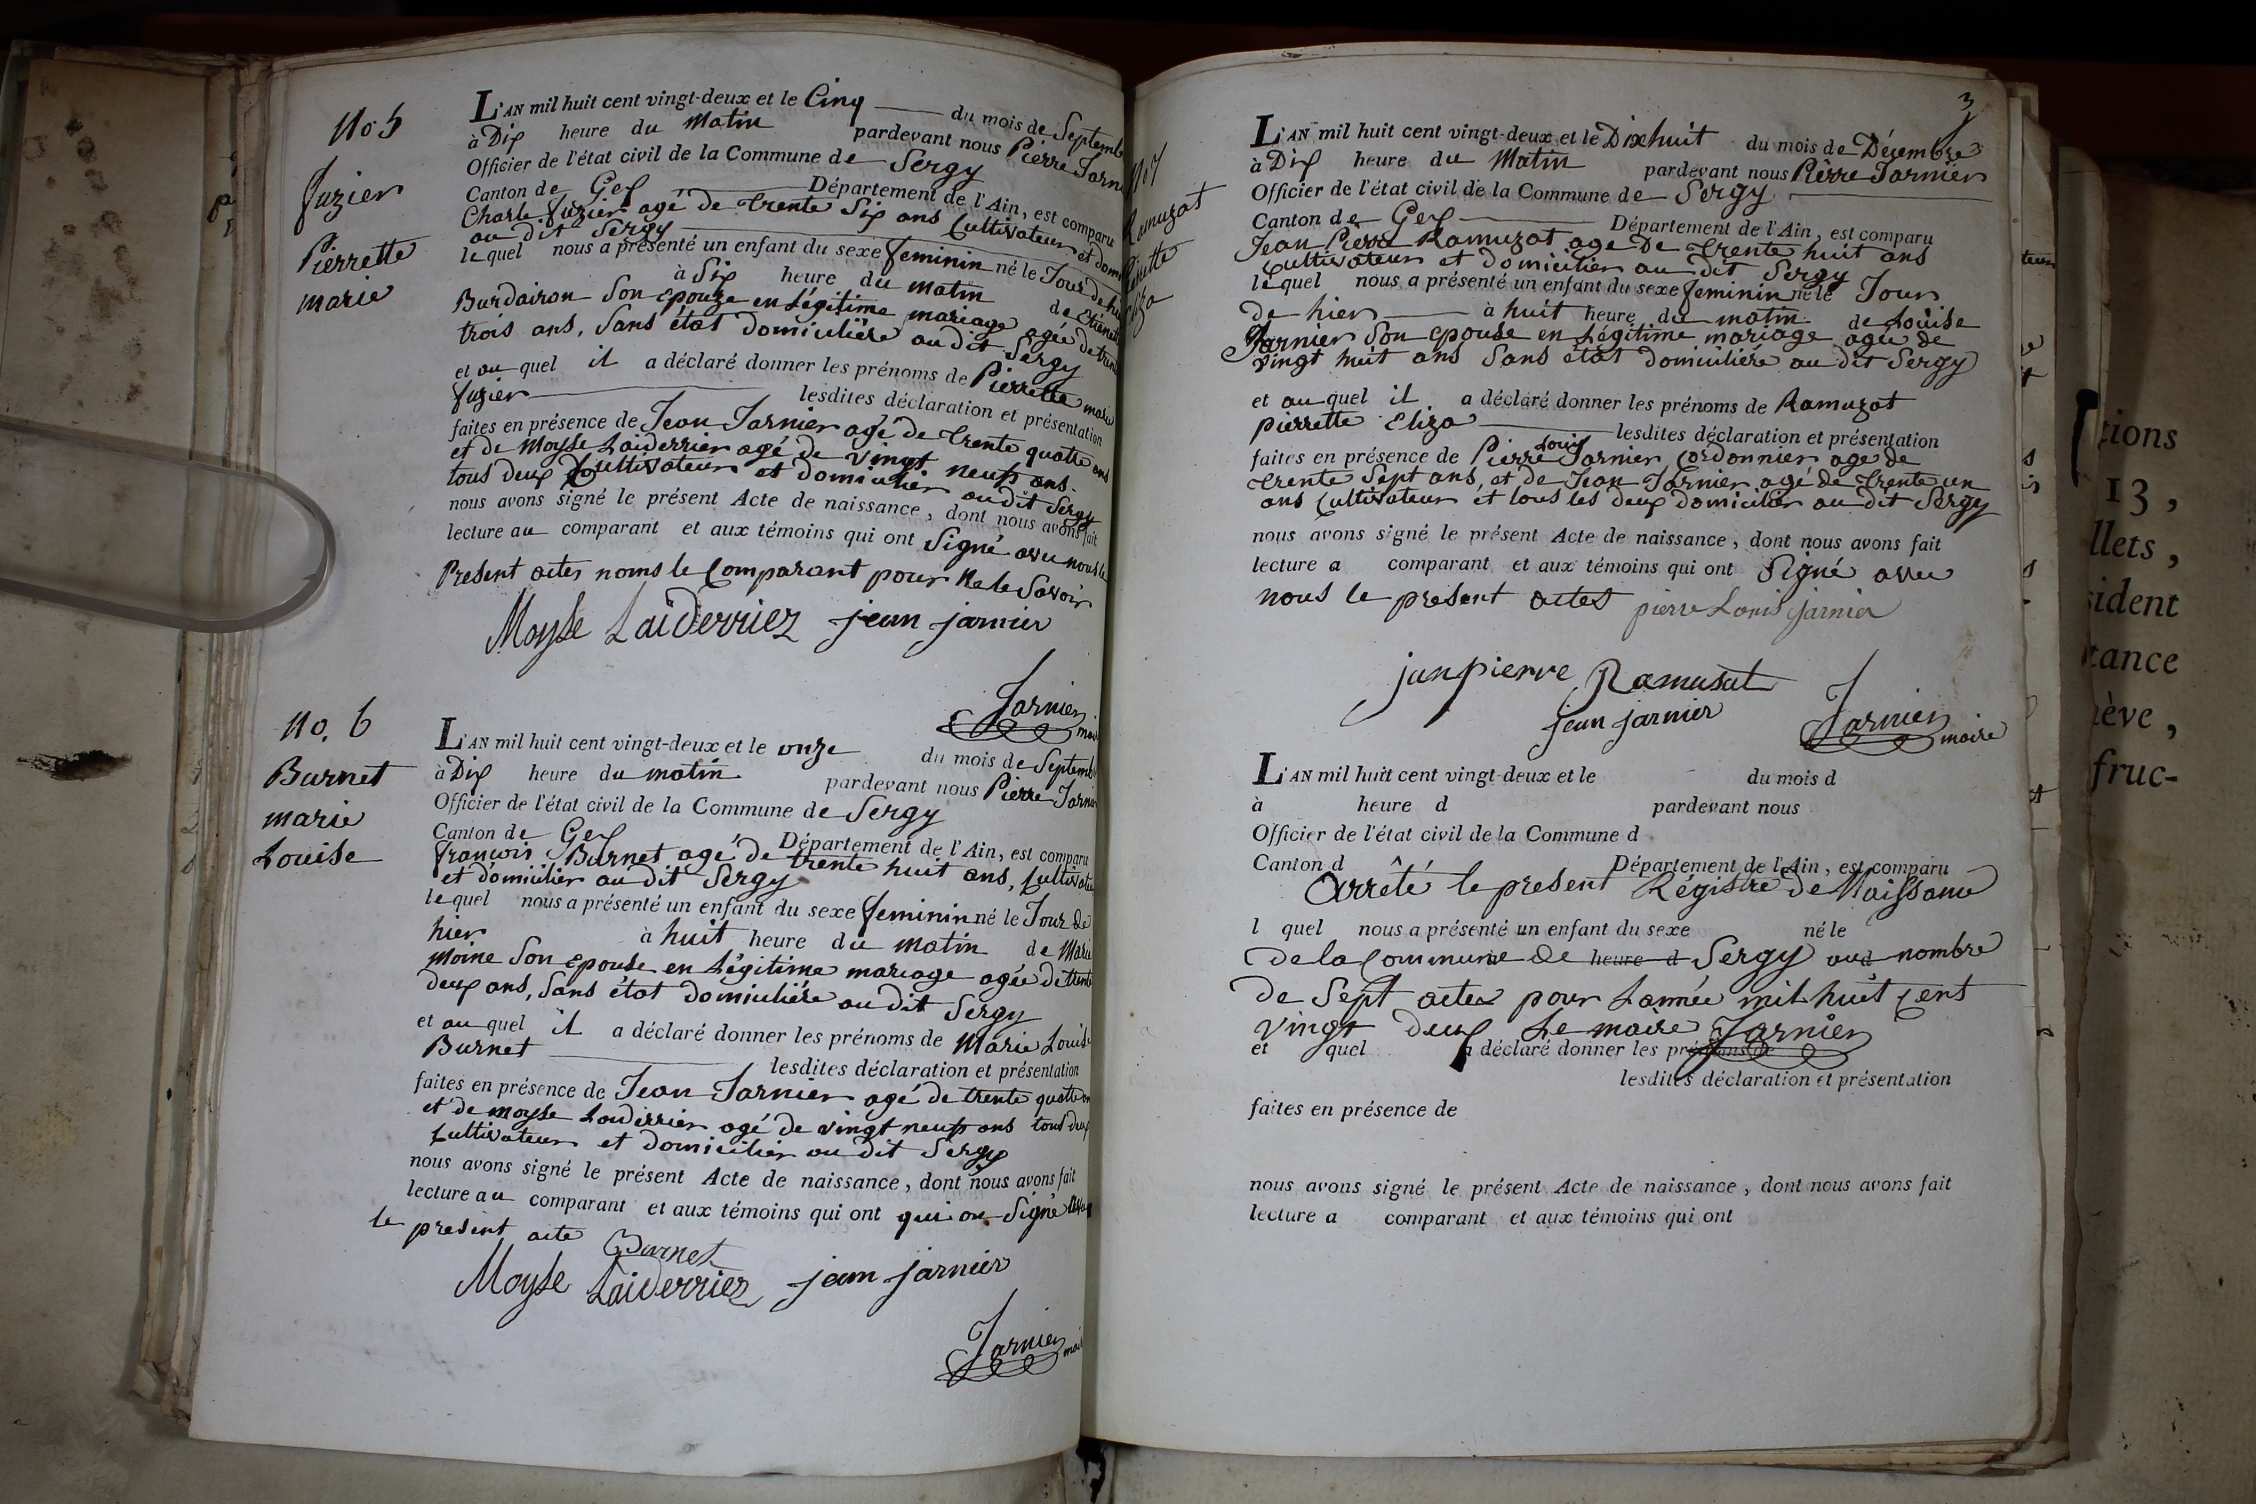 No 5
fuzier
Pierrette
marie
L'AN mil huit cent vingt-deux et le Cinq du mois de Septemb
à Dix heure du Matin pardevant nous Pierre Jarn
Officier de l'état civil de la Commune de Sergy
Canton de Gex Département de l'Ain, est comparu
Charle fuzier agé de trente Six ans Cultivateur et dom
au dit Sergy
lequel nous a présenté un enfant du sexe feminin né le Jour de
à Six heure du matin de
Burdairon Son epouze en Légitime mariage agée de
trois ans, Sans état domiciliére au dit Sergy
et au quel il a déclaré donner les prénoms de Pierrette marie
fuzier lesdites déclaration et présentation
faites en présence de Jean Jarnier agé de trente quatre ans
et de Moyse Laiderrier agé de vingt neuf ans.
tous deux Cultivateur et domicilier au dit Sergy
nous avons signé le présent Acte de naissance, dont nous avons fait
lecture au comparant et aux témoins qui ont Signé avec nous le
Present actes noms le Comparant pour ne le Savoir
Moyse Laiderriez jean jarnier
Jarnier
No. 6
Burnet
marie
Louise
L'AN mil huit cent vingt-deux et le onze du mois de Septemb
à Dix heure du matin pardevant nous Pierre Jarnier
Officier de l'état civil de la Commune de Sergy
Canton de Gex Département de l'Ain, est comparu
francois Burnet agé de trente huit ans, Cultivateu
et domicilier au dit Sergy
lequel nous a présenté un enfant du sexe feminin né le Jour de
hier à huit heure du matin de Marie
Moine Son epouse en Légitime mariage agée de trente
deux ans, Sans état domiciliére au dit Sergy
et au quel il a déclaré donner les prénoms de Marie Louise
Burnet lesdites déclaration et présentation
faites en présence de Jean Jarnier agé de trente quatre an
et de moyse Laiderrier agé de vingt neuf ans tous deux
Cultivateur et domicilier au dit Sergy
nous avons signé le présent Acte de naissance, dont nous avons fait
lecture au comparant et aux témoins qui ont qui on Signé
le present acte
Burnet
Moyse Laiderriez jean jarnier
Jarnier
3
No 7
Ramuzat
Pierrette
Eliza
L'AN mil huit cent vingt-deux et le Dixhuit du mois de Décembre
à Dix heure du Matin pardevant nous Pierre Jarnier
Officier de l'état civil de la Commune de Sergy
Canton de Gex Département de l'Ain, est comparu
Jean Pierre Ramuzat age de trente huit ans
Cultivateur et domicilier au dit Sergy
lequel nous a présenté un enfant du sexe feminin né le Jour
de hier à huit heure du matin de Louise
Jarnier Son epouse en Légitime mariage agée de
vingt huit ans Sans état domiciliére au dit Sergy
et au quel il a déclaré donner les prénoms de Ramuzat
pierrette Eliza lesdites déclaration et présentation
faites en présence de Pierre Louis Jarnier Cordonnier age de
trente Sept ans, et de Jean Jarnier agé de trente un
ans Cultivateur et tous les deux domicilier au dit Sergy
nous avons signé le présent Acte de naissance, dont nous avons fait
lecture a comparant et aux témoins qui ont Signé avec
nous le present actes pierre Louis jarnier
jan pierre Ramusat
jean jarnier
Jarnier maire
L'AN mil huit cent vingt-deux et le du mois d
à heure d pardevant nous
Officier de l'état civil de la Commune d
Canton d Département de l'Ain, est comparu
Arrêté le present Régistre de Naissance
l quel nous a présenté un enfant du sexe né le
de la Commune de heure d Sergy au nombre
de Sept actes pour Lannée mil huit Cent
vingt deux Le maire Jarnier
et quel a déclaré donner les prénoms de
lesdites déclaration et présentation
faites en présence de
nous avons signé le présent Acte de naissance, dont nous avons fait
lecture a comparant et aux témoins qui ont
tions
13,
llets,
sident
tance
nève,
fruc-